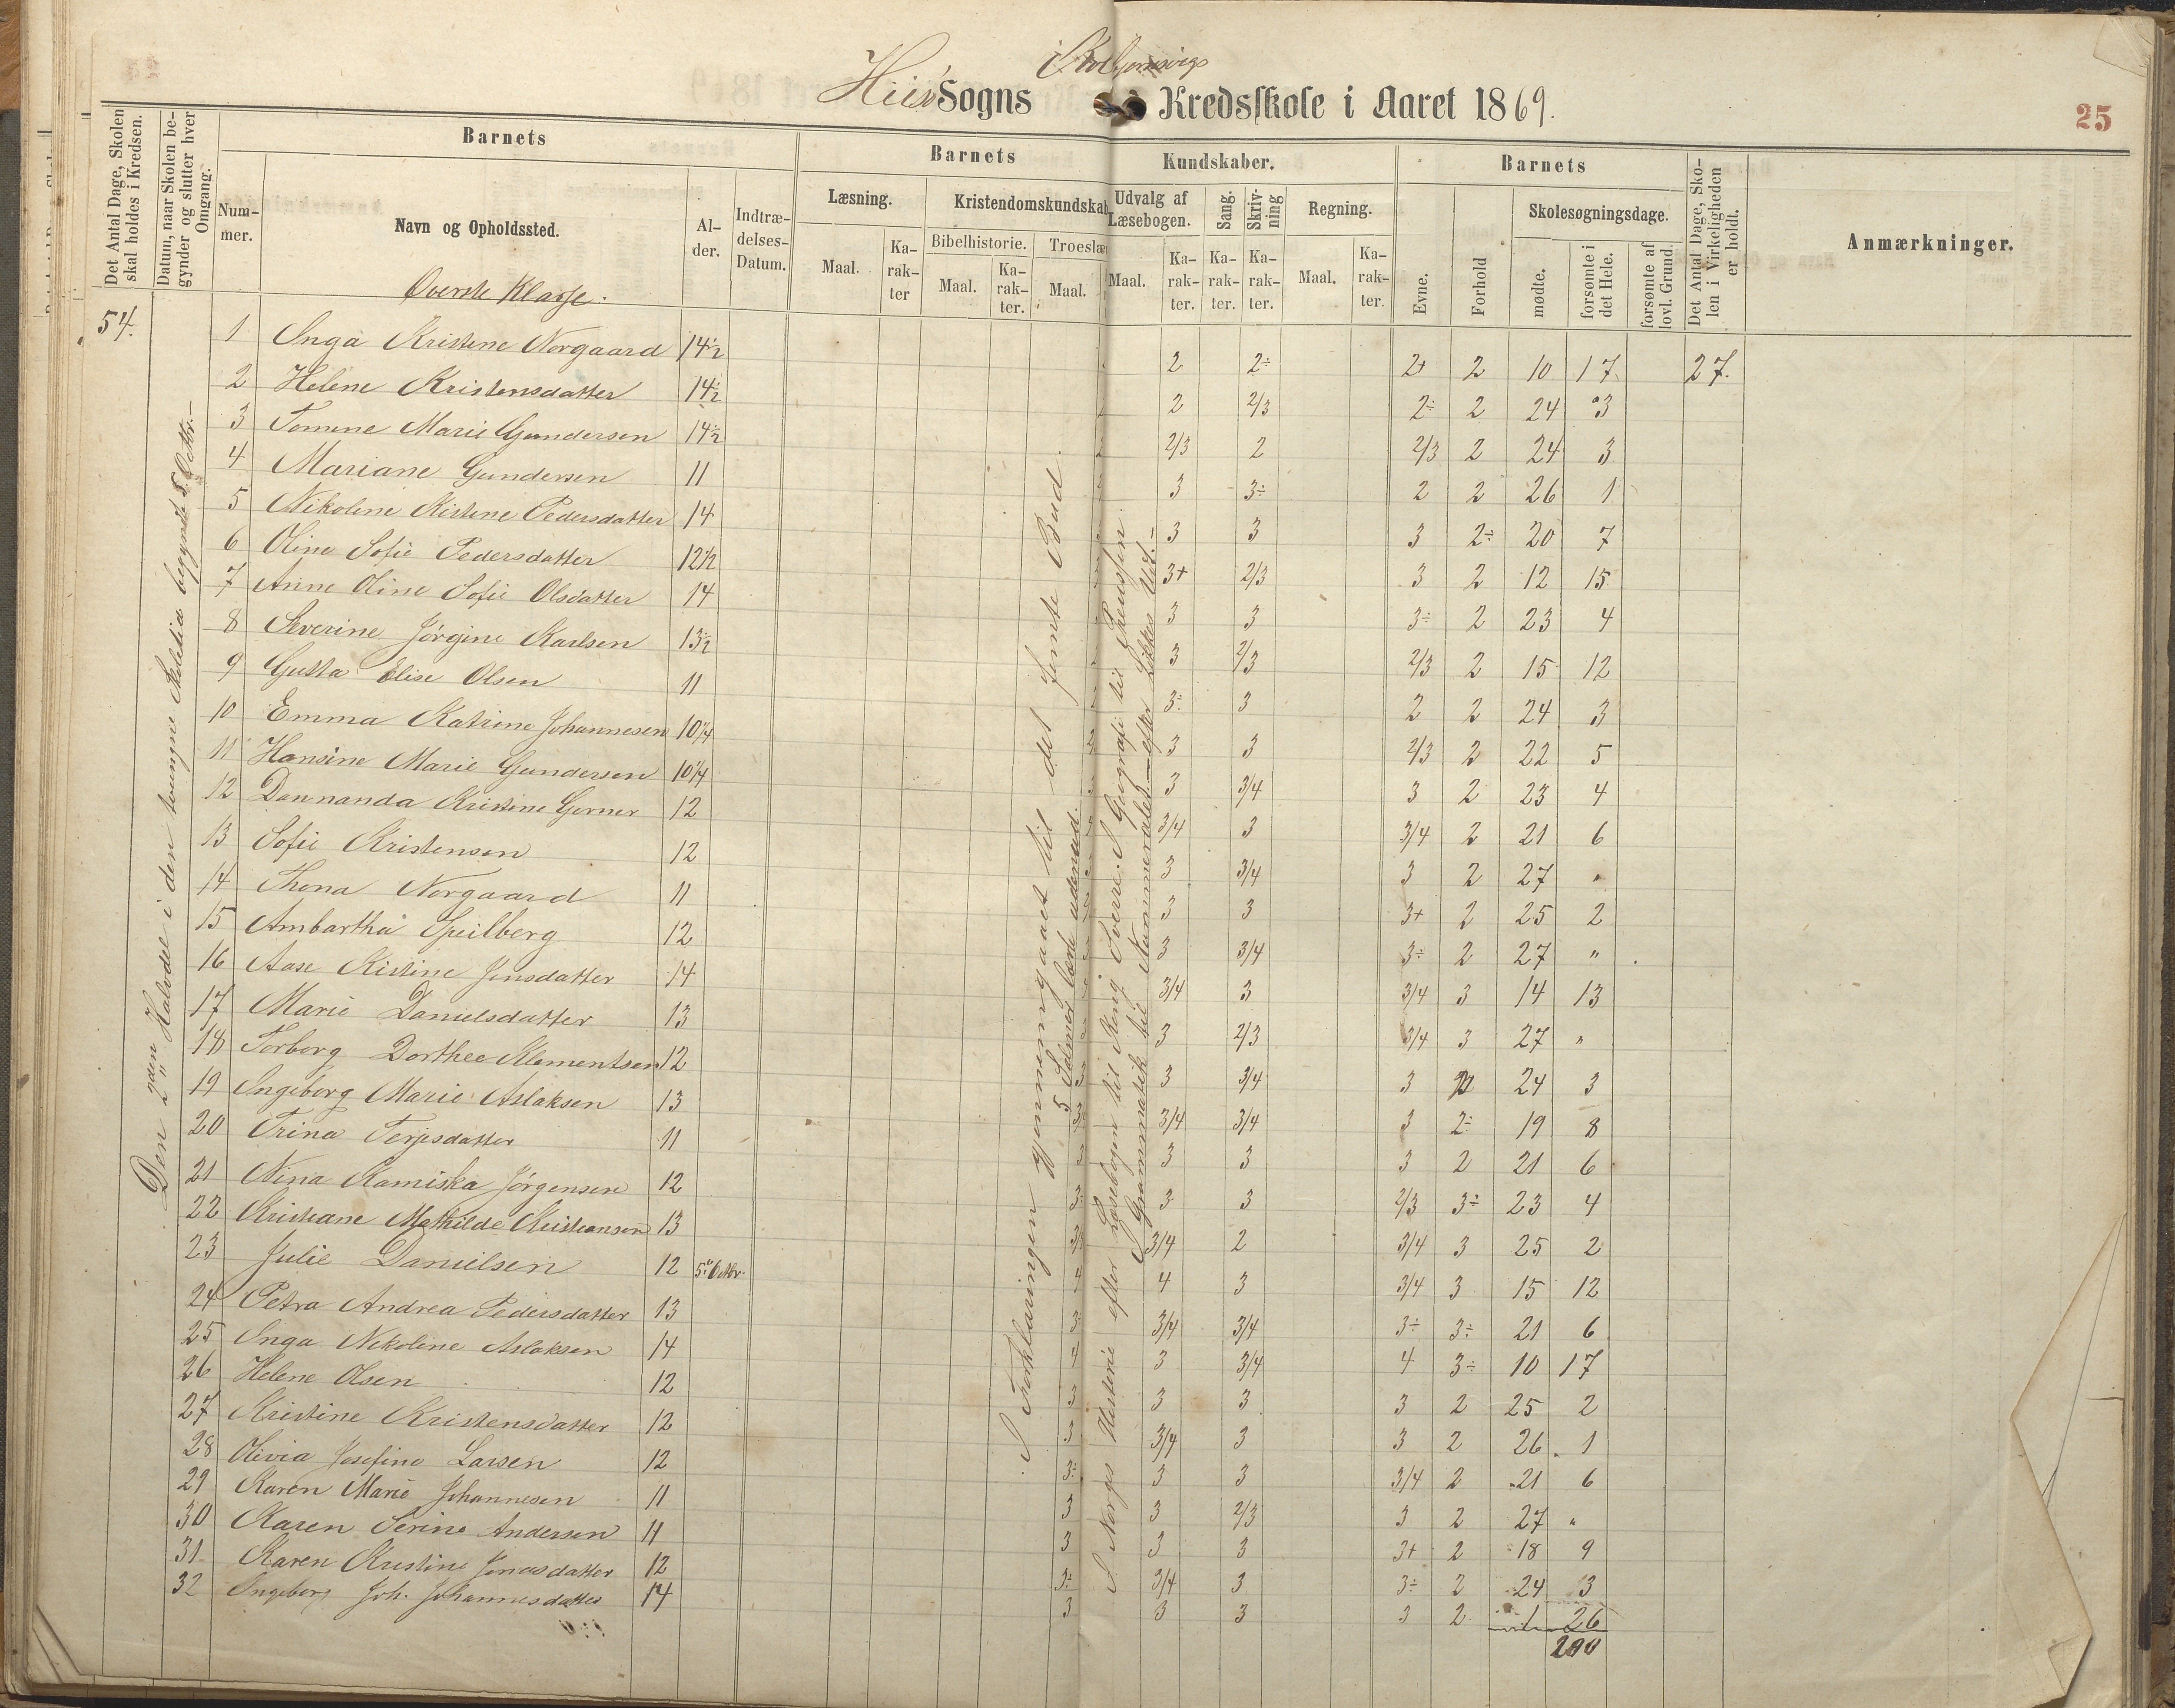 i Kolbjørnsvigs
Hiisø Sogns Kredsskole i Aaret 1869.
25
Det Antal Dage, Skolen skal holdes i Kredsen.
Datum, naar Skolen begynder og slutter hver Omgang.
Barnets
Barnets
Kundskaber.
Barnets
Det Antal Dage, Skolen i Virkeligheden er holdt.
Anmærkninger.
Nummer.
Navn og Opholdssted.
Alder.
Indtrædelses-Datum.
Læsning.
Kristendomskundskab
Udvalg af Læsebogen.
Sang.
Skrivning
Regning.
Evne.
Forhold
Skolesøgningsdage.
Maal.
Karakter
Bibelhistorie.
Troeslæ
Maal.
Karakter.
Maal.
Maal.
Karakter.
Karakter.
Karakter.
Maal.
Karakter.
mødte.
forsømte i det Hele.
forsømte af lovl. Grund.
Øverste Klasse.
54.
1 Inga Kristine Norgaard 14½ 2 2÷ 2+ 2 10 17 27.
2 Helene Kristensdatter 14½ 2 2/3 2÷ 2 24 3
3 Tomine Marie Gundersen 14½ 2/3 2 2/3 2 24 3
4 Mariane Gundersen 11 3 3÷ 2 2 26 1
5 Nikoline Kistine Pedersdatter 14 3 3 3 2÷ 20 7
6 Oline Sofie Pedersdatter 12½ 3+ 2/3 3 2 12 15
7 Anne Oline Sofie Olsdatter 14 3 3 3÷ 2 23 4
8 Severine Jørgine Karlsen 13½ 3 2/3 2/3 2 15 12
9 Gusta Elise Olsen 11 3÷ 3 2 2 24 3
10 Emma Katrine Johannesen 10¼ 3 3 2/3 2 22 5
11 Hansine Marie Gundersen 10¼ 3 3/4 3 2 23 4
12 Dannanda Kristine Gerner 12 3/4 3 3/4 2 21 6
13 Sofie Kristensen 12 3 3/4 3 2 27 "
14 Thona Norgaard 11 3 3 3+ 2 25 2
15 Ambartha Speilberg 12 3 3/4 3÷ 2 27 "
16 Aase Kistine Jensdatter 14 3/4 3 3/4 3 14 13
17 Marie Danielsdatter 13 3 2/3 3/4 3 27 "
18 Torborg Dorthee Klementsen 12 3 3/4 3 2 24 3
19 Ingeborg Marie Aslaksen 13 3/4 3/4 3 2÷ 19 8
20 Trina Terjesdatter 11 3 3 3 3 2 21 6
21 Nina Kamiska Jørgensen 12 3÷ 3 3 2/3 3÷ 23 4
22 Kristiane Mathilde Kristiansen 13 3/4 3/4 2 3/4 3 25 2
23 Julie Danielsen 12 5te Octbr. 4 4 3 3/4 3 15 12
24 Petra Andrea Pedersdatter 13 3÷ 3/4 3/4 3÷ 3÷ 21 6
25 Inga Nikoline Aslaksen 14 4 3 3/4 4 3÷ 10 17
26 Helene Olsen 12 3 3 3 3 2 25 2
27 Kristine Kristensdatter 12 3 3/4 3 3 2 26 1
28 Olivia Josefine Larsen 12 3÷ 3 3 3/4 2 21 6
29 Karen Marie Johannesen 11 3 3 2/3 3 2 27 "
30 Karen Serine Andersen 11 3 3 3 3+ 2 18 9
31 Karen Kristine Jonasdatter 12 3÷ 3/4 3 3÷ 2 24 3
32 Ingeborg Joh. Johannesdatter 14 3 3 3 3 2 1 26
200
Den 2den Halvdel i den tvungne Skoletid begyndte 5. Octbr.
I Forklaringen gjennemgaaet til det femte Bud.
5 Salmer lærte udenad.
I Norges Historie efter Læsebogen til Kong Sverre. I Geografi til Preussen.
I Grammatik til Nummeralet efter Løkkes Udt.